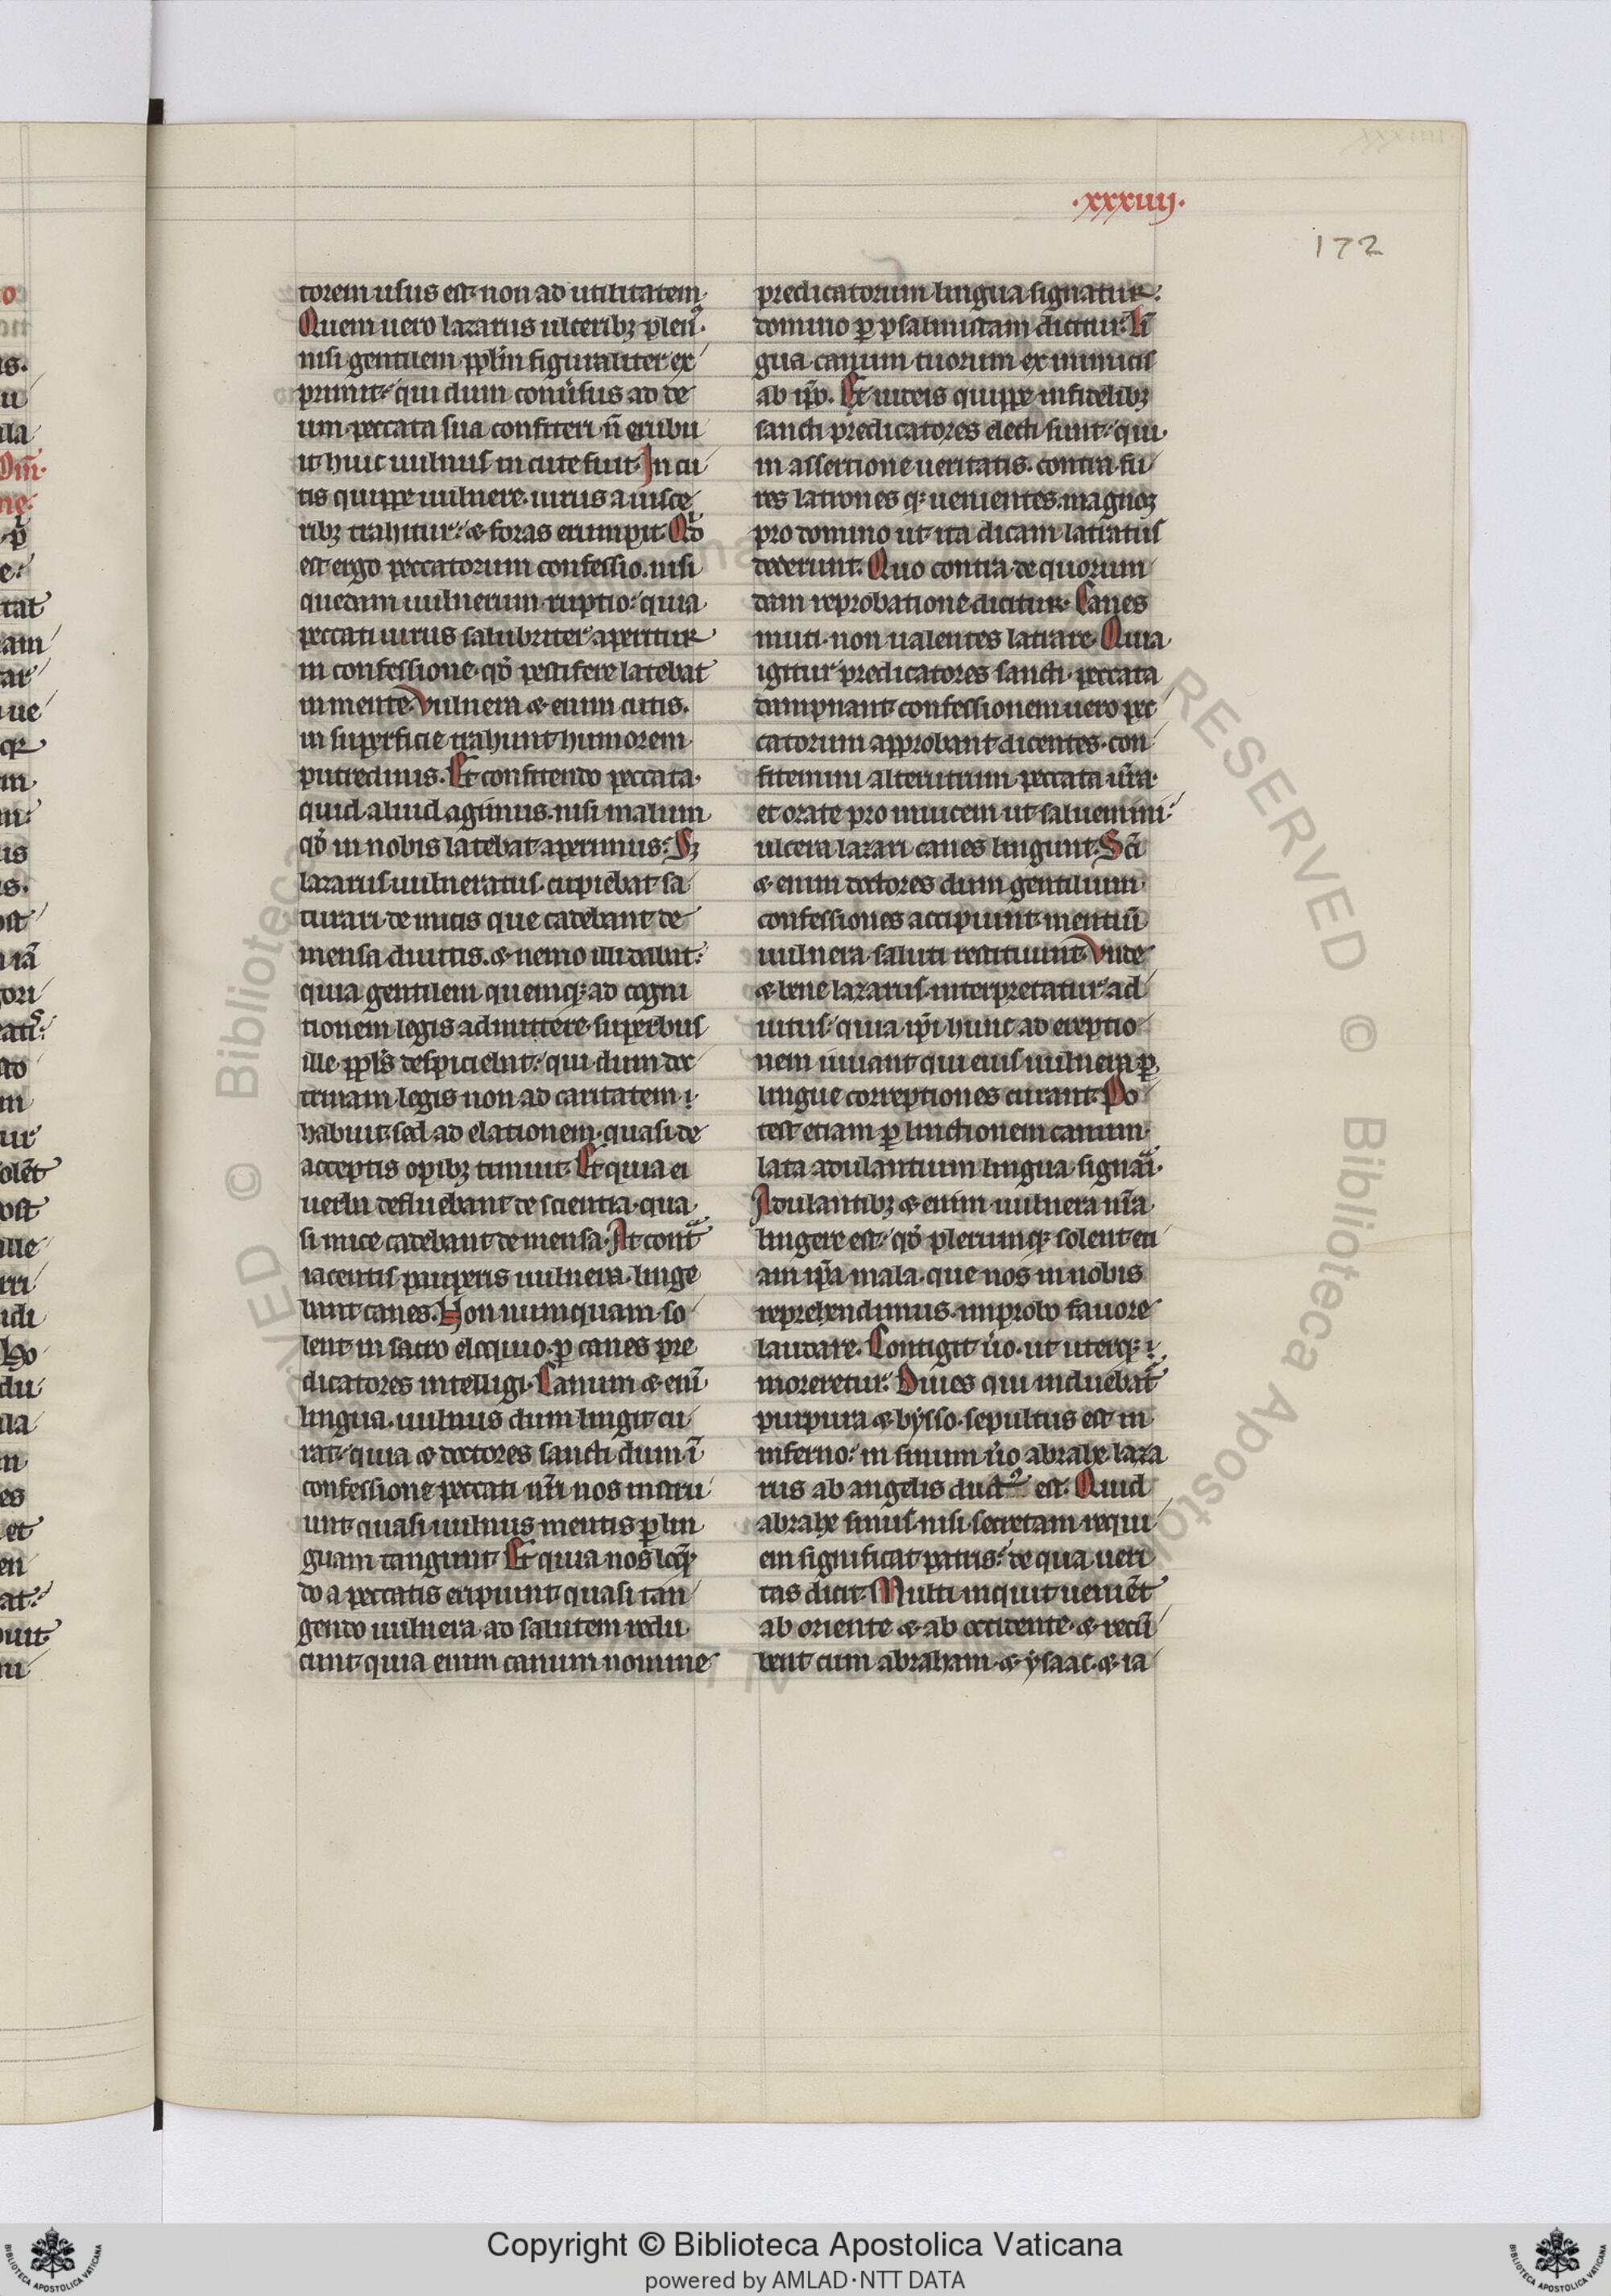 ·xxxiiij·
172
torem usus est non ad utilitatem·
Quem uero lazarus ulceribꝫ plenꝰ·
nisi gentilem ppl̄m figuraliter ex
primit· qui dum conuersus ad de
um peccata sua confiteri n̄ erubu
it huic uulnus in cute fuit· In cu
tis quippe uulnere· uirus a uisce
ribꝫ trahitur· ⁊ foras erumpit· Qͥd
est ergo peccatorum confessio· nisi
quedam uulnerum ruptio· quia
peccati uirus salubriter aperitur
in confessione· qd̄ pestifere latebat
in mente· Vulnera ⁊ enim cutis·
in superficie trahunt humorem
putredinis· Et confitendo peccata·
quid aliud agimus· nisi malum
qd̄ in nobis latebat aperimus· Sꝫ
lazarus uulneratus· cupiebat sa
turari de micis que cadebant de
mensa diuitis· ⁊ nemo illi dabat·
quia gentilem quemqꝫ ad cogni
tionem legis admittere· superbus
ille ppl̄s despiciebat· qui dum doc
trinam legis non ad caritatem
habuit sed ad elationem· quasi de
acceptis opibꝫ tumuit· Et quia ei
uerba defluebant de scientia· qua
si mice cadebant de mensa· At contᵃ
iacentis pauperis uulnera· linge
bant canes· Non numquam so
lent in sacro eloquio· ꝑ canes pre
dicatores intelligi· Canum ⁊ enī
lingua· uulnus dum lingit cu
rat· quia ⁊ doctores sancti dum ī
confessione peccati nr̄i nos instru
unt quasi uulnus mentis ꝑ lin
guam tangunt· Et quia nos loqn̄
do a peccatis eripiunt quasi tan
gendo uulnera ad salutem redu
cunt quia enim canum nomine
predicatorum lingua signatur·
domino ꝑ psalmistam dicitur· Lī
gua canum tuorum ex inimicis
ab ip̄o· Ex iudeis quippe infidelibꝫ
sancti predicatores electi sunt· qui
in assertione ueritatis· contra fu
res latrones qꝫ uenientes· magnos
pro domino ut ita dicam latratus
dederunt· Quo contra de quorum
dam reprobatione dicitur· Canes
muti· non ualentes latrare· Quia
igitur predicatores sancti· peccata
dampnant confessionem uero pec
catorum approbant dicentes· con
fitemini alterutrum peccata ur̄a·
et orate pro inuicem ut saluemini·
ulcera lazari canes lingunt· Scī
⁊ enim doctores dum gentilium
confessiones accipiunt· mentiū
uulnera saluti restituunt· Vnde
⁊ bene lazarus interpretatur ad
iutus· quia ip̄i hunc ad ereptio
nem iuuant qui eius uulnera ꝑ
lingue correptiones curant· Po
test etiam ꝑ linctionem canum·
lata adulantium lingua signari·
Adulantibꝫ ⁊ enim uulnera nr̄a
lingere est· qd̄ plerumqꝫ solent eti
am ip̄a mala· que nos in nobis
reprehendimus· improbo fauore
laudare· Contigit ùo· ut uterqꝫ
moreretur· Diues qui induebatᵃ
purpura ⁊ bysso· sepultus est in
inferno· in sinum ùo abrahe laza
rus ab angelis ductꝰ est· Quid
abrahe sinus nisi secretam requi
em significat patris· de qua ueri
tas dicit· Multi inquit ueniēt
ab oriente ⁊ ab occidente· ⁊ recū
bent cum abraham ⁊ ysaac· ⁊ ia
Copyright © Biblioteca Apostolica Vaticana
powered by AMLAD·NTT DATA